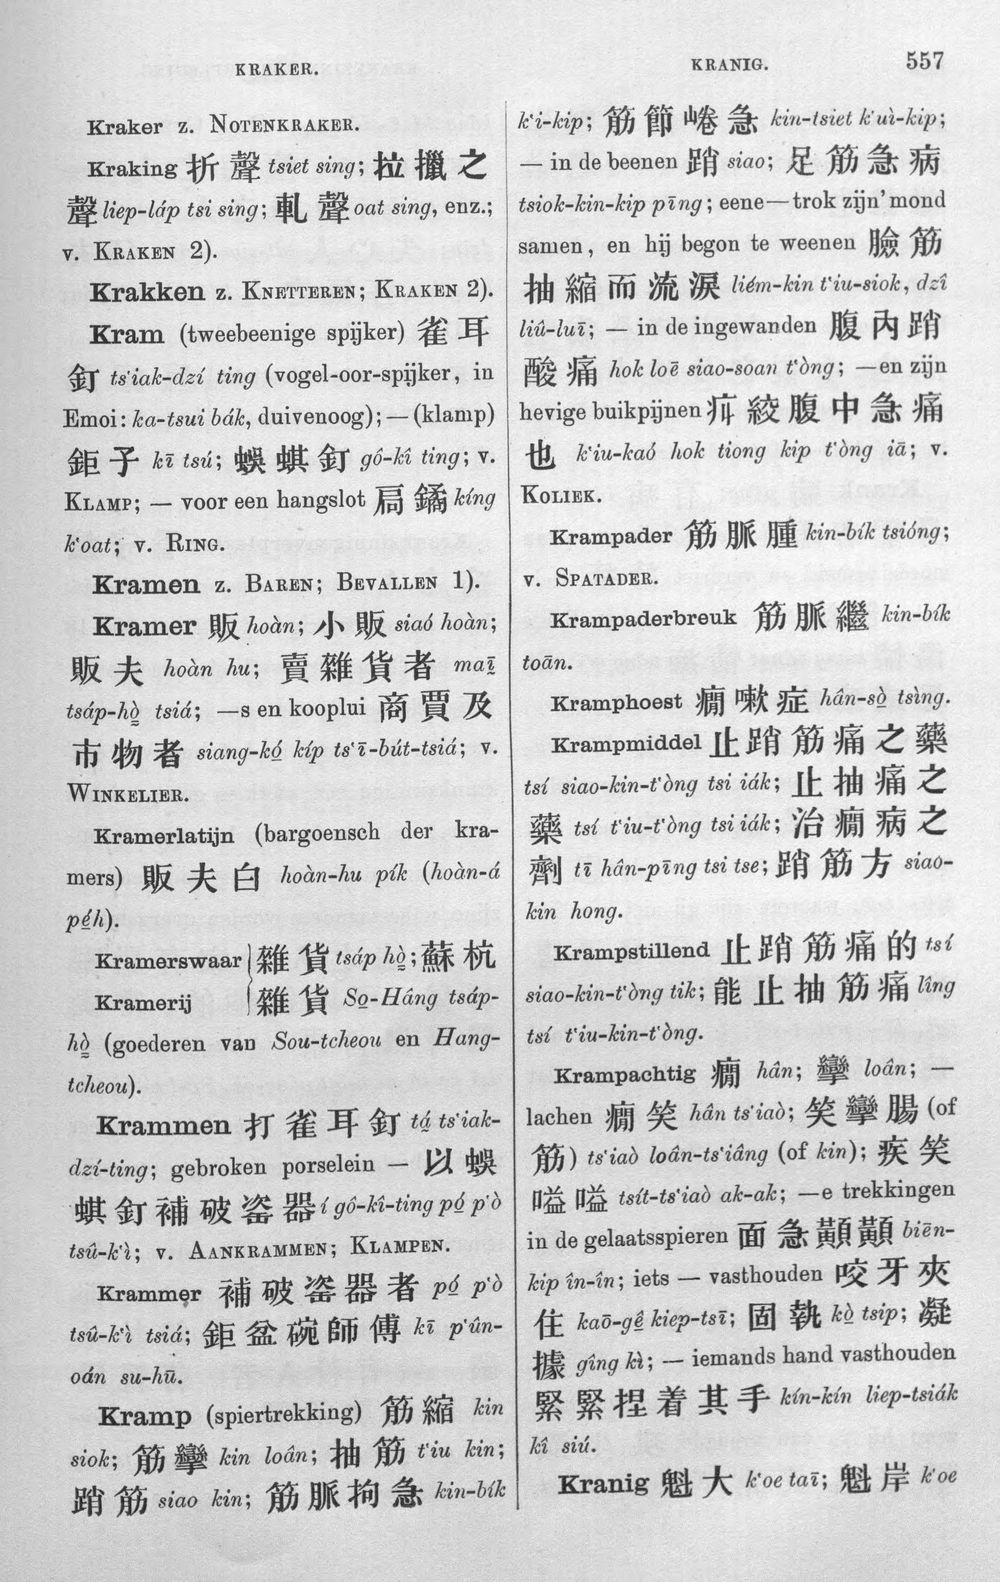 KRAKER.
KRANIG.
557
Kraker z. NOTENKRAKER.
Kraking 折聲 tsiet sing; 拉擸之
聲 liep-láp tsi sing; 軋聲 oat sing, enz.;
v. KRAKEN 2).
Krakken z. KNETTEREN; KRAKEN 2).
Kram (tweebeenige spijker) 雀耳
釘 ts‘iak-dzí ting (vogel-oor-spijker, in
Emoi: ka-tsui bák, duivenoog); — (klamp)
鉅子 kī tsú; 蜈蜞釘 gô-kî ting; v.
KLAMP; — voor een hangslot 扃鐍 kíng
k‘oat; v. RING.
Kramen z. BAREN; BEVALLEN 1).
Kramer 販 hoàn; 小販 siaó hoàn;
販夫 hoàn hu; 賣雜貨者 maī
tsáp-hò tsiá; —s en kooplui 商賈及
市物者 siang-kó kíp ts‘ī-bút-tsiá; v.
WINKELIER.
Kramerlatijn (bargoensch der kra-
mers) 販夫白 hoàn-hu pík (hoàn-á
péh).
Kramerswaar 雜貨 tsáp hò; 蘇杭
Kramerij 雜貨 So-Hâng tsáp-
hò (goederen van Sou-tcheou en Hang-
tcheou).
Krammen 打雀耳釘 tá ts‘iak-
dzí-ting; gebroken porselein — 以蜈
蜞釘補破瓷器 í gô-kî-ting pó p‘ò
tsû-k‘ì; v. AANKRAMMEN; KLAMPEN.
Krammer 補破瓷器者 pó p‘ò
tsû-k‘ì tsiá; 鉅盆碗師傅 kī p‘ûn-
oán su-hū.
Kramp (spiertrekking) 筋縮 kin
siok; 筋攣 kin loân; 抽筋 t‘iu kin;
踃筋 siao kin; 筋脈拘急 kin-bík
k‘i-kip; 筋節崦急 kin-tsiet k‘uì-kip;
— in de beenen 踃 siao; 足筋急病
tsiok-kin-kip pīng; eene — trok zijn' mond
samen, en hij begon te weenen 臉筋
抽縮而流淚 liém-kin t‘iu-siok, dzî
liû-luī; — in de ingewanden 腹內踃
酸痛 hok loē siao-soan t‘òng; —en zijn
hevige buikpijnen 疛絞腹中急痛
也 k‘iu-kaó hok tiong kip t‘òng iā; v.
KOLIEK.
Krampader 筋脈腫 kin-bík tsióng;
v. SPATADER.
Krampaderbreuk 筋脈繼 kin-bík
toān.
Kramphoest 癇嗽症 hân-sò tsìng.
Krampmiddel 止踃筋痛之藥
tsí siao-kin-t‘òng tsi iák; 止抽痛之
藥 tsí t‘iu-t‘òng tsi iák; 治癇病之
劑 tī hân-pīng tsi tse; 踃筋方 siao-
kin hong.
Krampstillend 止踃筋痛的 tsí
siao-kin-t‘òng tik; 能止抽筋痛 lîng
tsí t‘iu-kin-t‘òng.
Krampachtig 癇 hân; 攣 loân; —
lachen 癇笑 hân ts‘iaò; 笑攣腸 (of
筋) ts‘iaò loân-ts‘iâng (of kin); 疾笑
嗌嗌 tsít-ts‘iaò ak-ak; —e trekkingen
in de gelaatsspieren 面急顜顜 biēn-
kip în-în; iets — vasthouden 咬牙夾
住 kaō-gê kiep-tsī; 固執 kò tsip; 凝
據 gîng kì; — iemands hand vasthouden
緊緊捏着其手 kín-kín liep-tsiák
kî siú.
Kranig 魁大 k‘oe taī; 魁岸 k‘oe